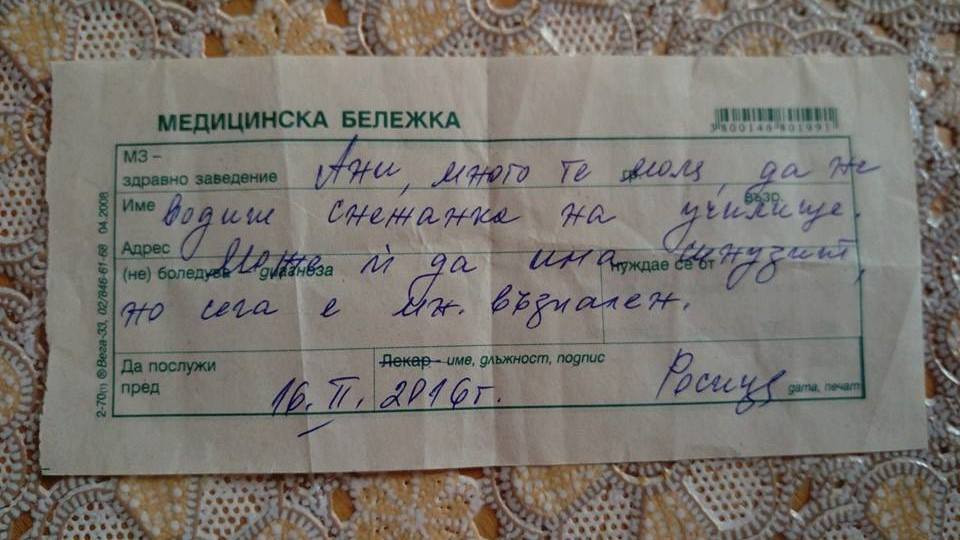 МЕДИЦИНСКА БЕЛЕЖКА
3800146801991
МЗ –
здравно заведение
Ани, много те моля, да не
Име
възр.
водиш Снежанка на училище.
Адрес
Може и да има синузит,
(не) боледува диагноза
нуждае се от
но сега е мн. възпален.
Да послужи
пред
Лекар – име, длъжност, подпис
16. II. 2016г.
Росица
дата, печат
2-70(1) ®Вега-33, 02/846-61-68 04.2008